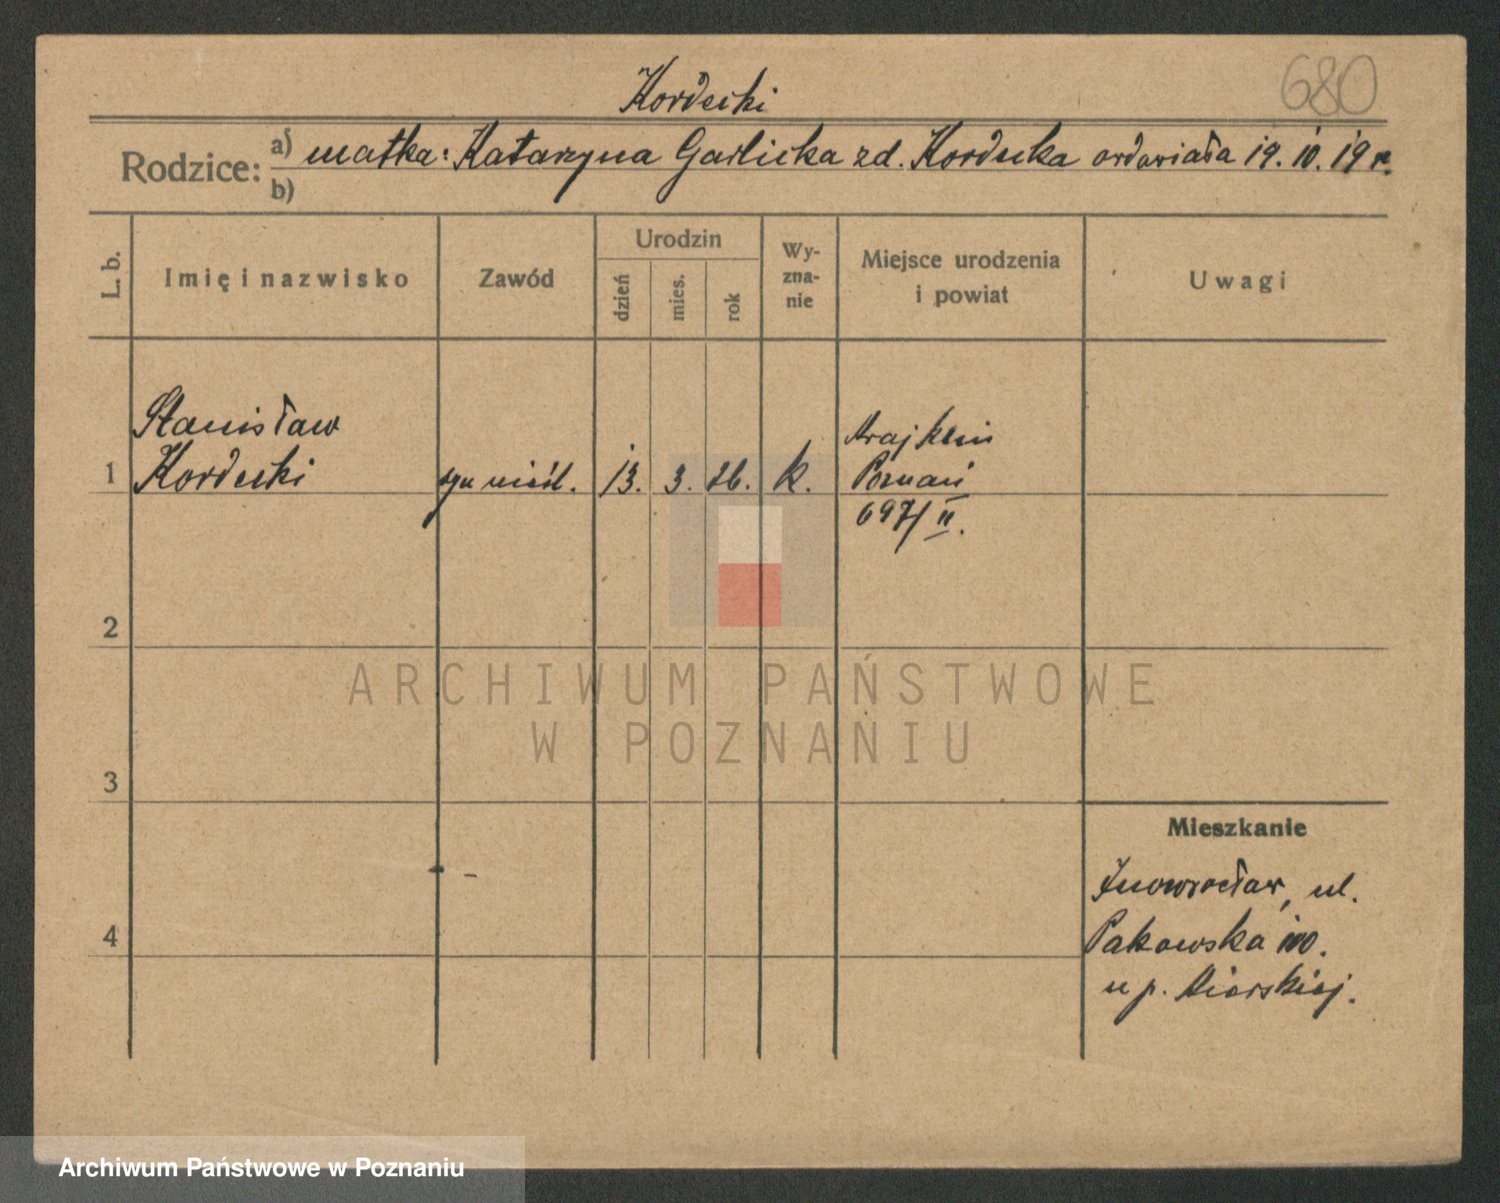 680
Kordecki
Rodzice: a) matka: Katarzyna Garlicka zd. Kordecka owdowiała 19. 10. 19 r.
b)
L. b.
Imię i nazwisko
Zawód
Urodzin
dzień
mies.
rok
Wy-
zna-
nie
Miejsce urodzenia
i powiat
Uwagi
Stanisław
1 Kordecki syn nieśl. 13. 3. 26. k.
Poznań
697/II.
2
3
4
Mieszkanie
Inowrocław, ul.
Pakowska 100.
u p.
ARCHIWUM PAŃSTWOWE
W POZNANIU
Archiwum Państwowe w Poznaniu